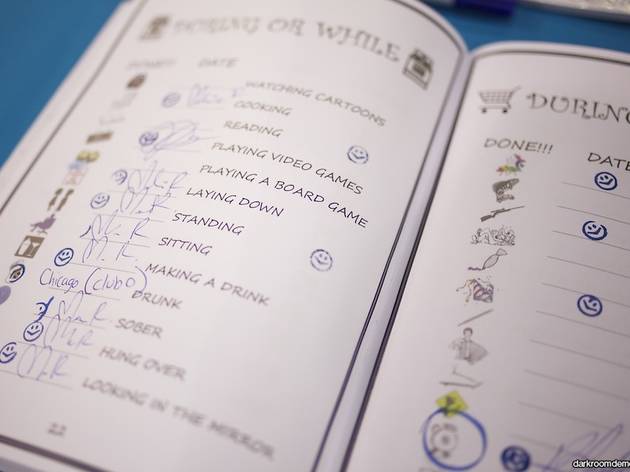 DURING OR WHILE
DONE!!! DATE
WATCHING CARTOONS
COOKING
READING
PLAYING VIDEO GAMES
PLAYING A BOARD GAME
LAYING DOWN
STANDING
SITTING
MAKING A DRINK
Chicago (club)
DRUNK
SOBER
HUNG OVER
LOOKING IN THE MIRROR
22
DURING
DONE!!! DATE
darkroomdem